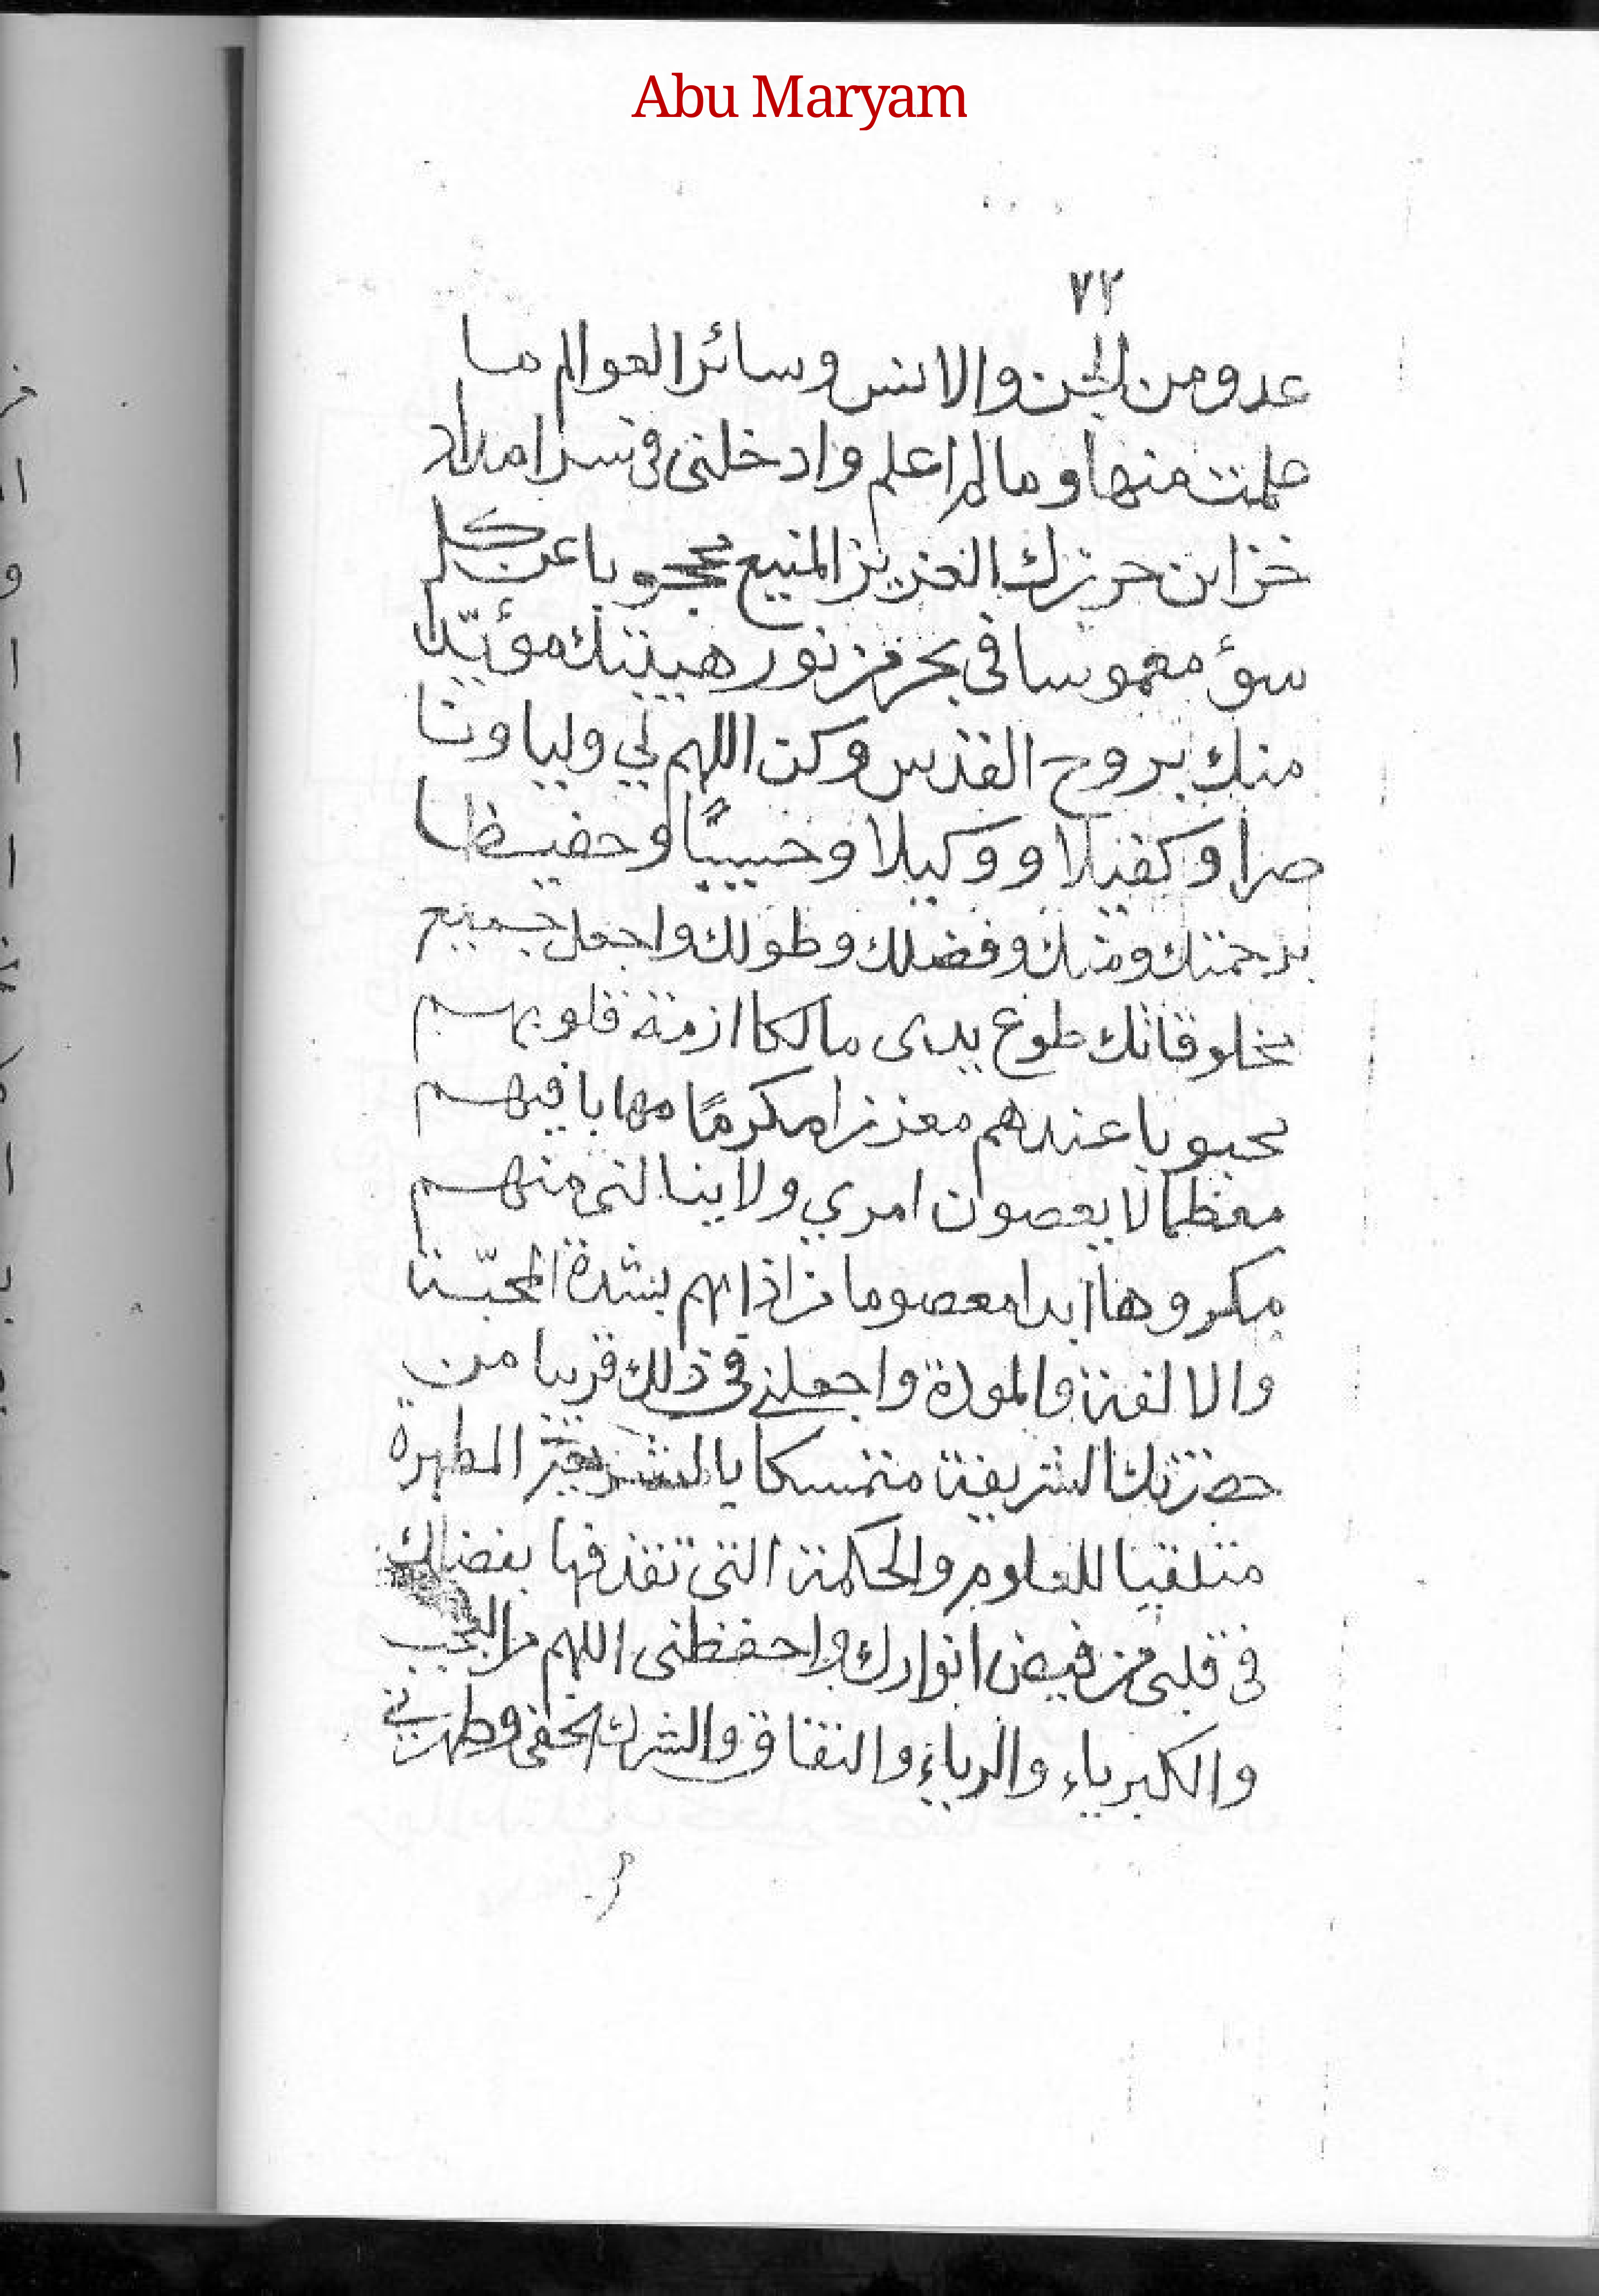 Abu Maryam
٧٢
عدو من الجن والانس وسائر العوالم ما
علمت منها وما لم اعلم وادخلنى فى سر امداد
خزائن حرزك العزيز المنيع محجوبا عن كل
سؤ مغموسا فى بحر من نور هيبتك مؤيّدا
منك بروح القدس وكن اللهم لي وليا ونا
صرا وكفيلا و وكيلا وحبيبًا وحفيظا
برحمتك ومنك وفضلك وطولك واجعل جميع
مخلوقاتك طوع يدى مالكا ازمة قلوبهم
محبوبا عندهم معززا مكرمًا مهابا فيهم
معظما لا يعصون امري ولا ينالنى منهم
مكروها ابدا معصوما من اذاهم بشدة المحبّة
والالفة والمودة واجعلنى فى ذلك قريبا من
حضرتك الشريفة متمسكا بالشريعة المطهرة
متلقيا للعلوم والحكمة التى تقذفها بفضلك
فى قلبى من فيض انوارك واحفظنى اللهم من العجب
والكبرياء والرياء والنفاق والشرك الخفى وطهرنى